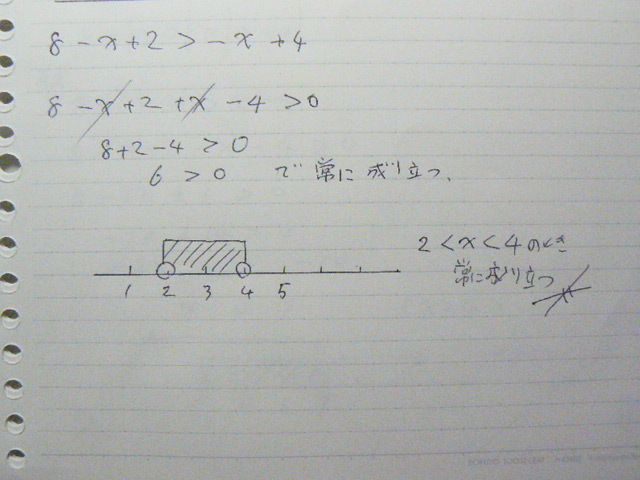 8 - x + 2 > - x + 4
8 - x + 2 + x - 4 > 0
8+2-4 > 0
6 > 0 で常に成り立つ、
1 2 3 4 5
2 < x < 4 のとき
常に成り立つ